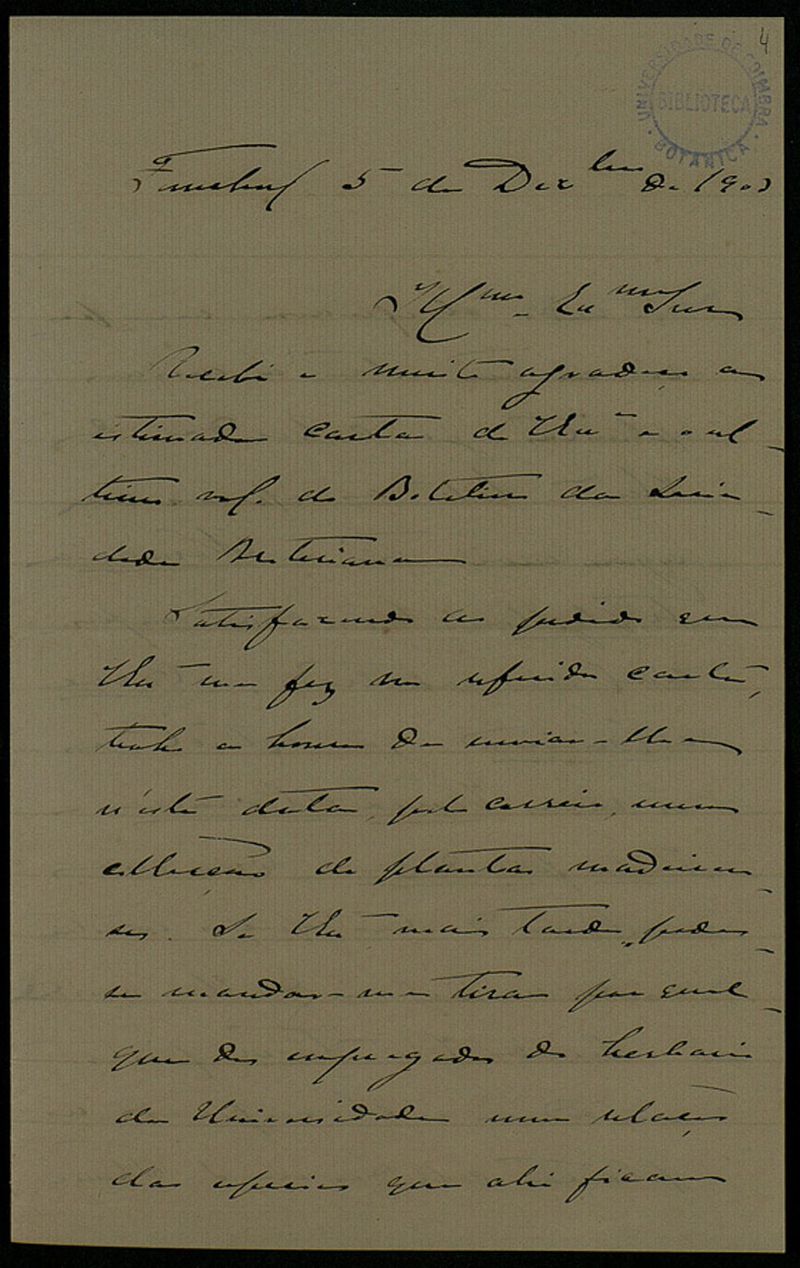 4
UNIVERSIDADE DE COIMBRA
BIBLIOTECA
BOTANICA
Funchal 5 de Dezbro de 1903
Illmo. Exmo Snr
Recebi e muito agradeço a
estimada carta de VExa e o ul-
timo vol. do Boletim da Socie-
dade Broteriana
Satisfazendo ao pedido que
VExa me fez na referida carta,
tenho a honra de enviar-lhe
n'esta data, pelo correio, uma
collecção de plantas madeiren-
ses. Se VExa mais tarde, poder-
se mandar-me tirar por qual-
quer dos empregados do herbario
da Universidade uma relação
das especies que ahi ficam